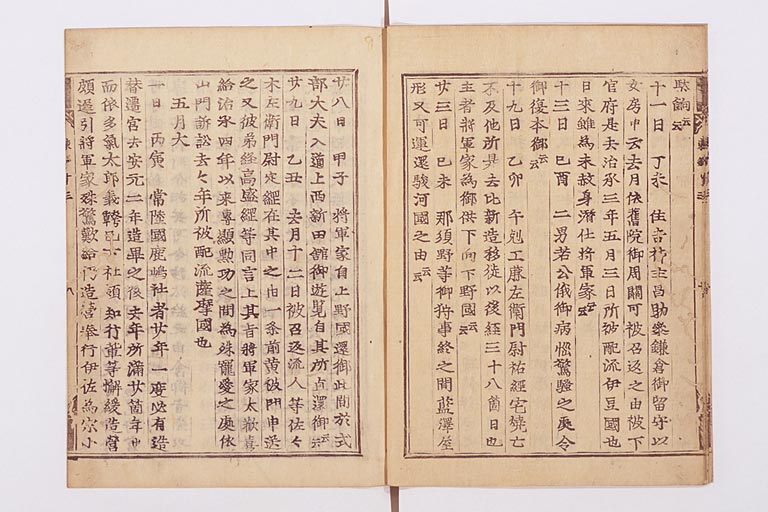 聯餉云云
十一日 丁未 住吉神主昌助樂鎌倉御留守以
女房申云去月依舊院御周闋可被召返之由被下
官府是去治承三年五月三日所被配流伊豆國也
日來雖爲未赦身潛仕將軍家云云
十三日 己酉 二男若公俄御病惱驚騷之處令
御復本御云云
十九日 乙卯 午剋工藤左衛門尉祐經宅燒亡
不及他所是去比新造移徒以後經三十八箇日也
主者將軍家爲御供下向下野國云云
廿三日 己未 那須野等御狩事終之間藍澤屋
形又可運還駿河國之由云云
廿八日 甲子 將軍家自上野國還御此間於式
部大夫入道上西新田舘御遊覽自其所直還御云云
廿九日 乙丑 去月十二日被召返流人等佐々
木左衛門尉定經在其中之由一條前黄門申送
之又彼弟經高盛經等同言上其旨將軍家太歡喜
給治承四年以來專顯勳功之間爲殊寵愛之處依
山門訴訟去々年所被配流薩摩國也
五月大
一日 丙寅 常陸國鹿嶋社者廿年一度必有造
替遷宮去安元二年造畢之後去年所滿廿箇年也
而依多氣太郎義幹已下社領知行輩等懈緩造營
頗遲引將軍家殊驚歎給仍造營奉行伊佐爲宗小